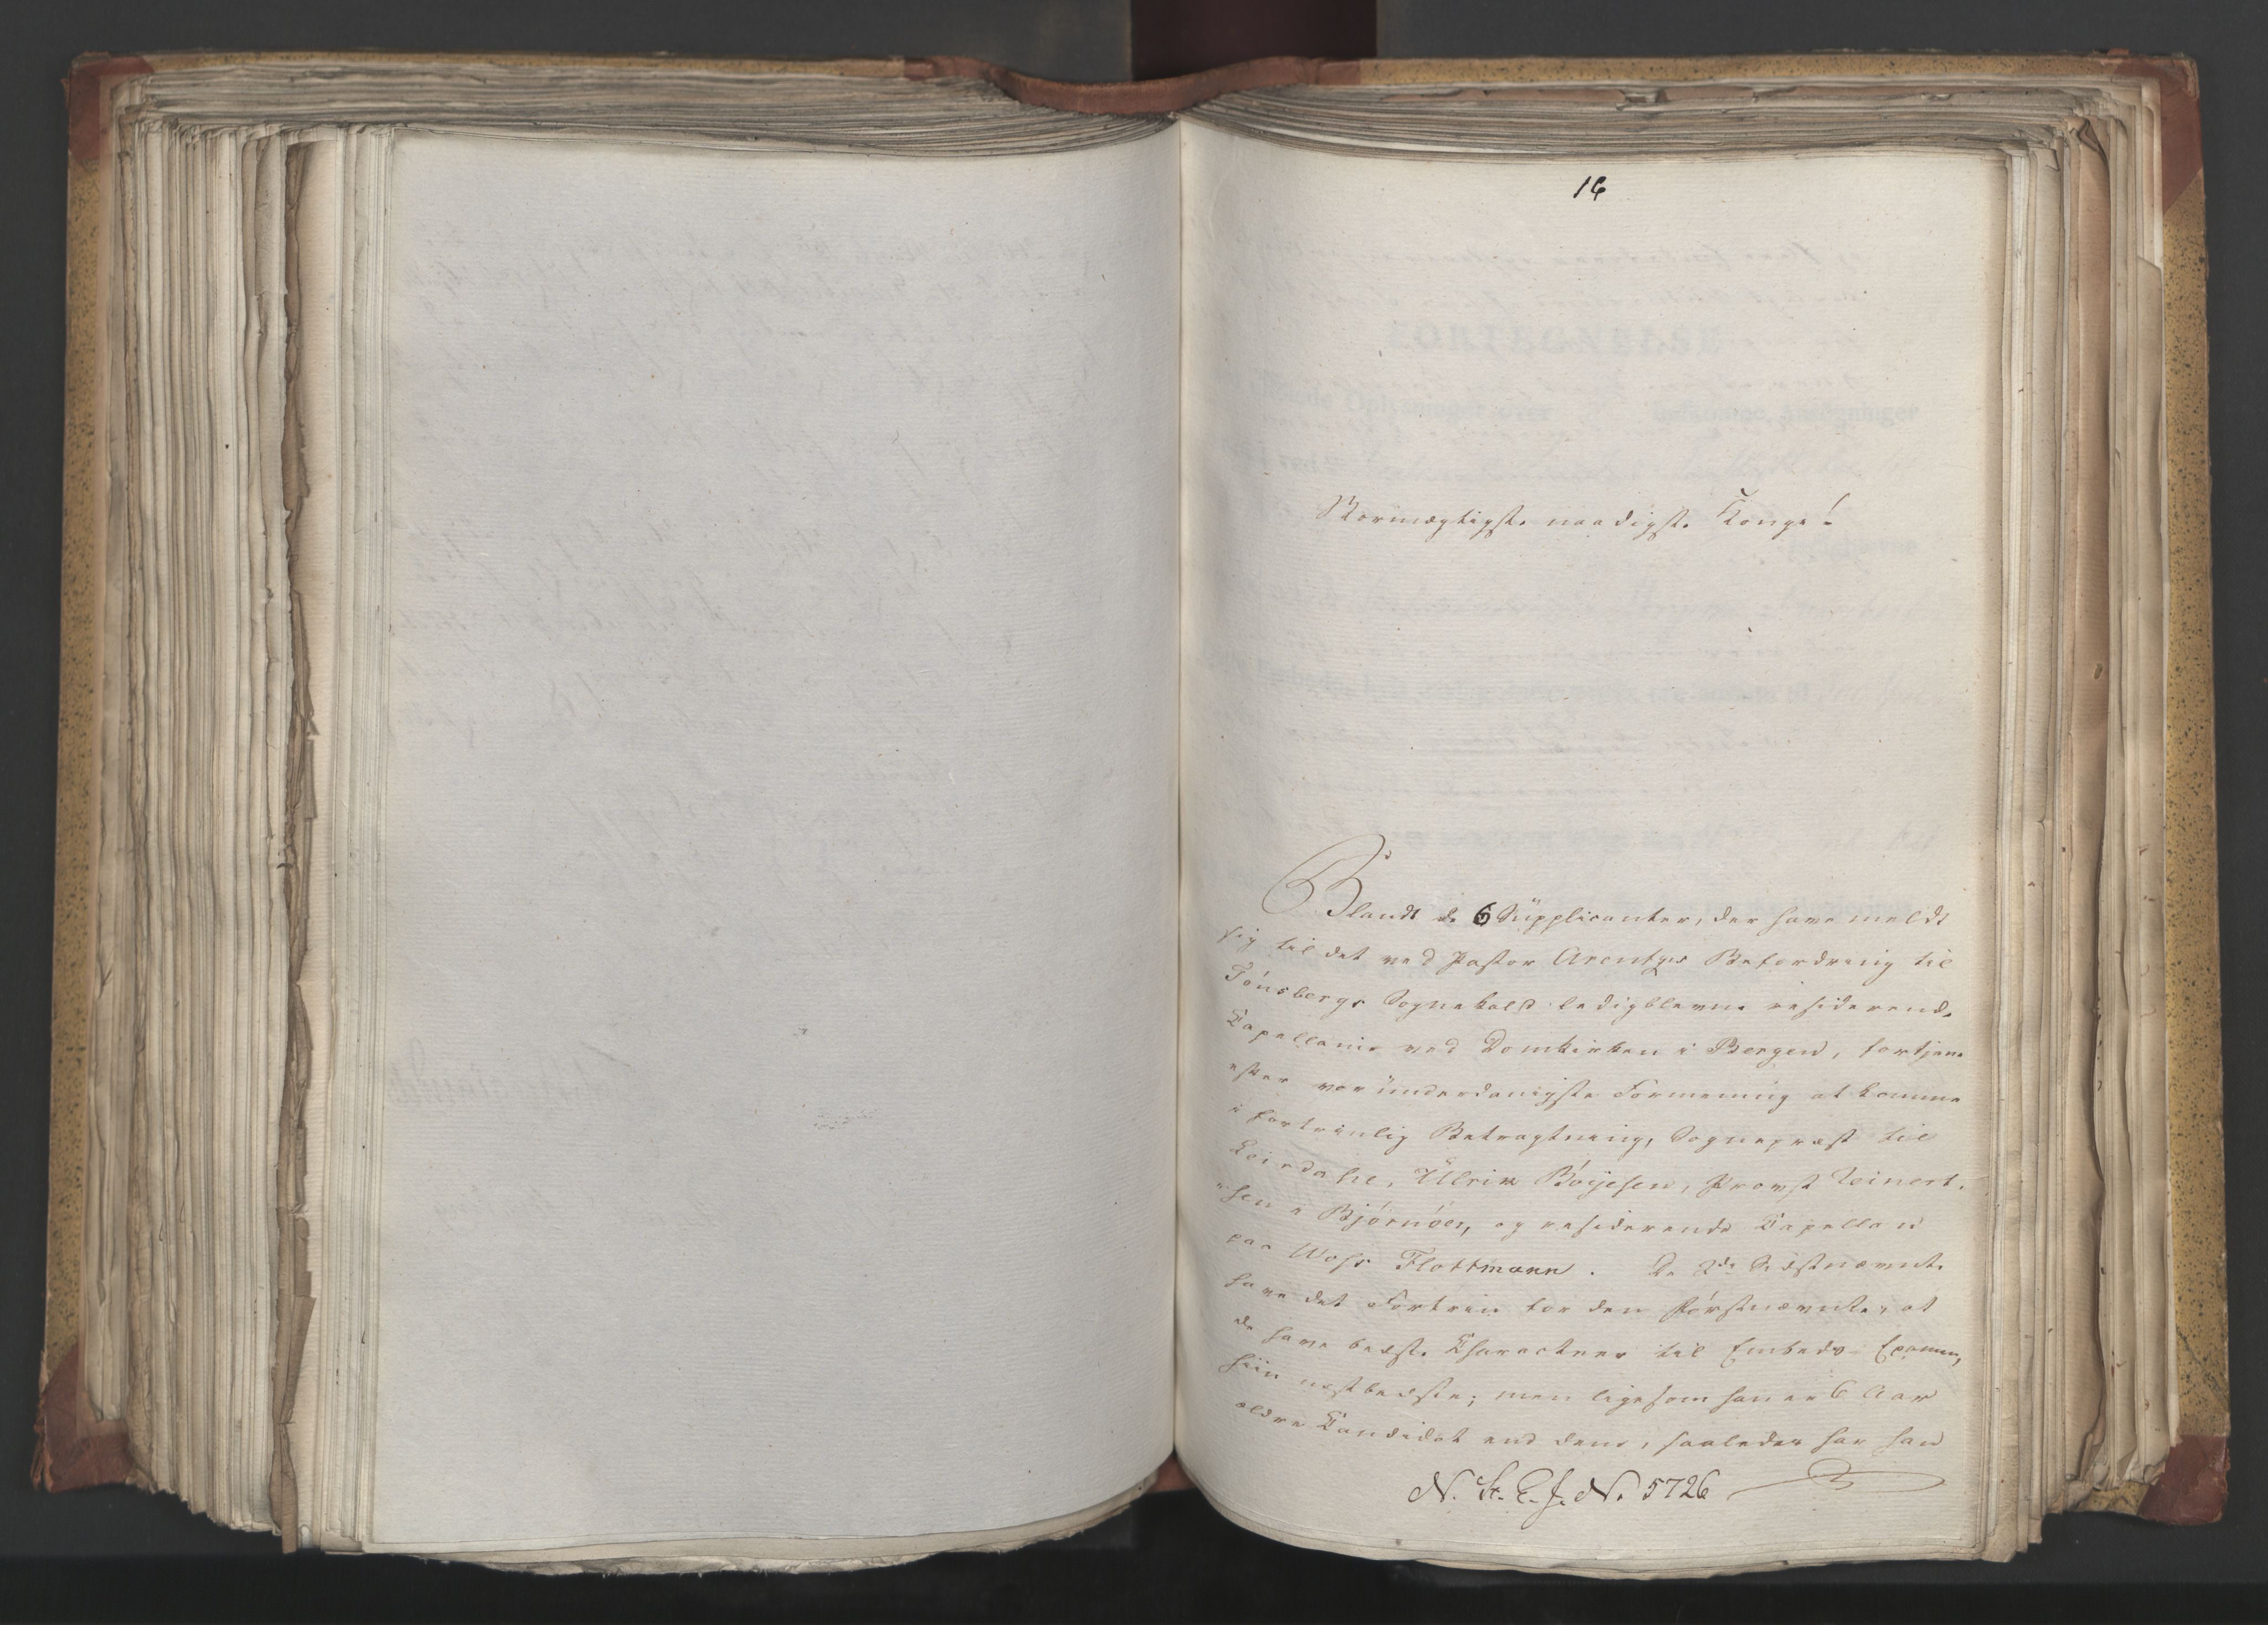 16
Stormægtigste naadigste Konge!
Blandt de 6 Supplicanter, der have meldt
sig til det ved Pastor Arentzes Befordring til
Tönsbergs Sognekald ledigblevne residerende
Capellanie ved Domkirken i Bergen, fortjene
efter vor underdanigste Formening at komme
i fortrinlig Betragtning, Sognepræst til
Ulrik Böyesen, Provst Reinert-
sen i Björnöer, og residerende Capellan
paa Woss Flottmann. De 2de Sidstnævnte
have det Fortrin for den Förstnævnte, at
de have bedste Characteer til Embeds-Examen,
hiin næstbedste; men ligesom han er 6 Aar
ældre Candidat end dem, saaledes har han
N. St. E. J. No 5726